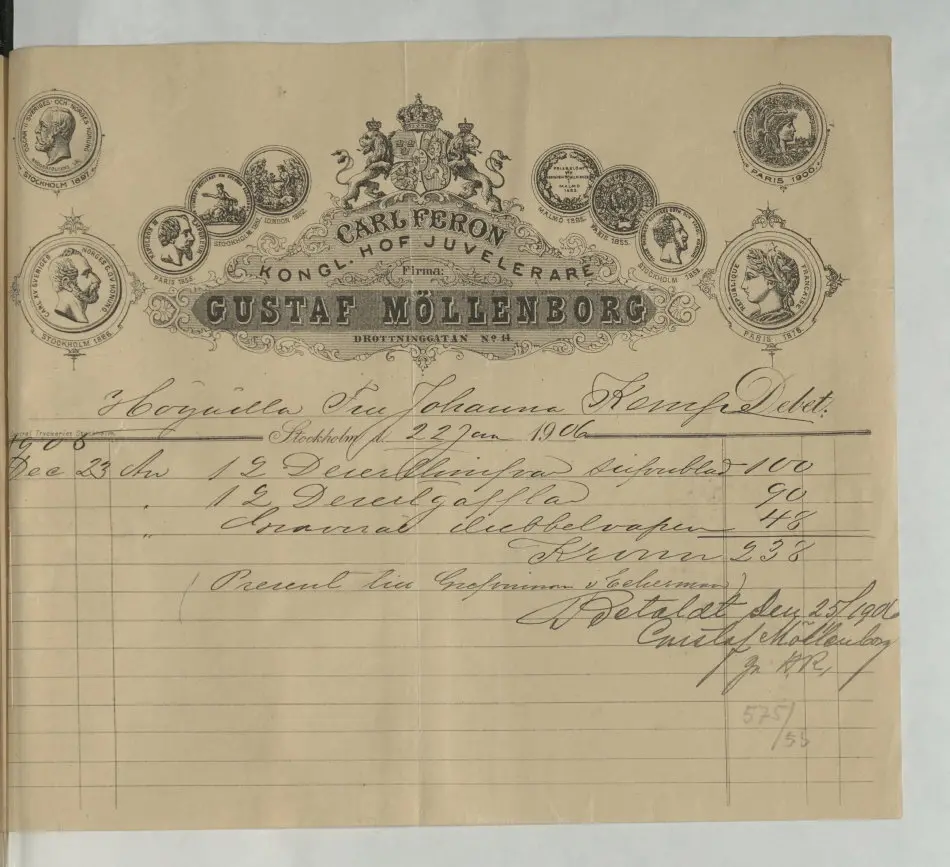 OSCAR II SVERIGES OCH NORGES KONUNG
STOCKHOLM 1897.
PARIS 1900.
STOCKHOLM
LONDON 1862.
MALMÖ 1865.
PARIS 1855.
NAPOLEON III
PARIS 1855
STOCKHOLM
CARL XV SVERIGES NORGES G. O. V. KONUNG
STOCKHOLM 1866.
REPUBLIQUE FRANCAISE
PARIS 1878.
CARL FERON
KONGL. HOF JUVELERARE
Firma:
GUSTAF MÖLLENBORG
DROTTNINGATAN No 14.
Fru Johanna Kempe Debet:
Stockholm d. 22 Jan 1906
1905
Dec 23 An 12 100
" 12 Desertgafflar 90
" Graverat dubbelvapen 48
Kronor 238
(Present till Grefvinnan v Eckerman)
Betaldt den 25/1 1906
Gustaf Möllenborg
575/
55